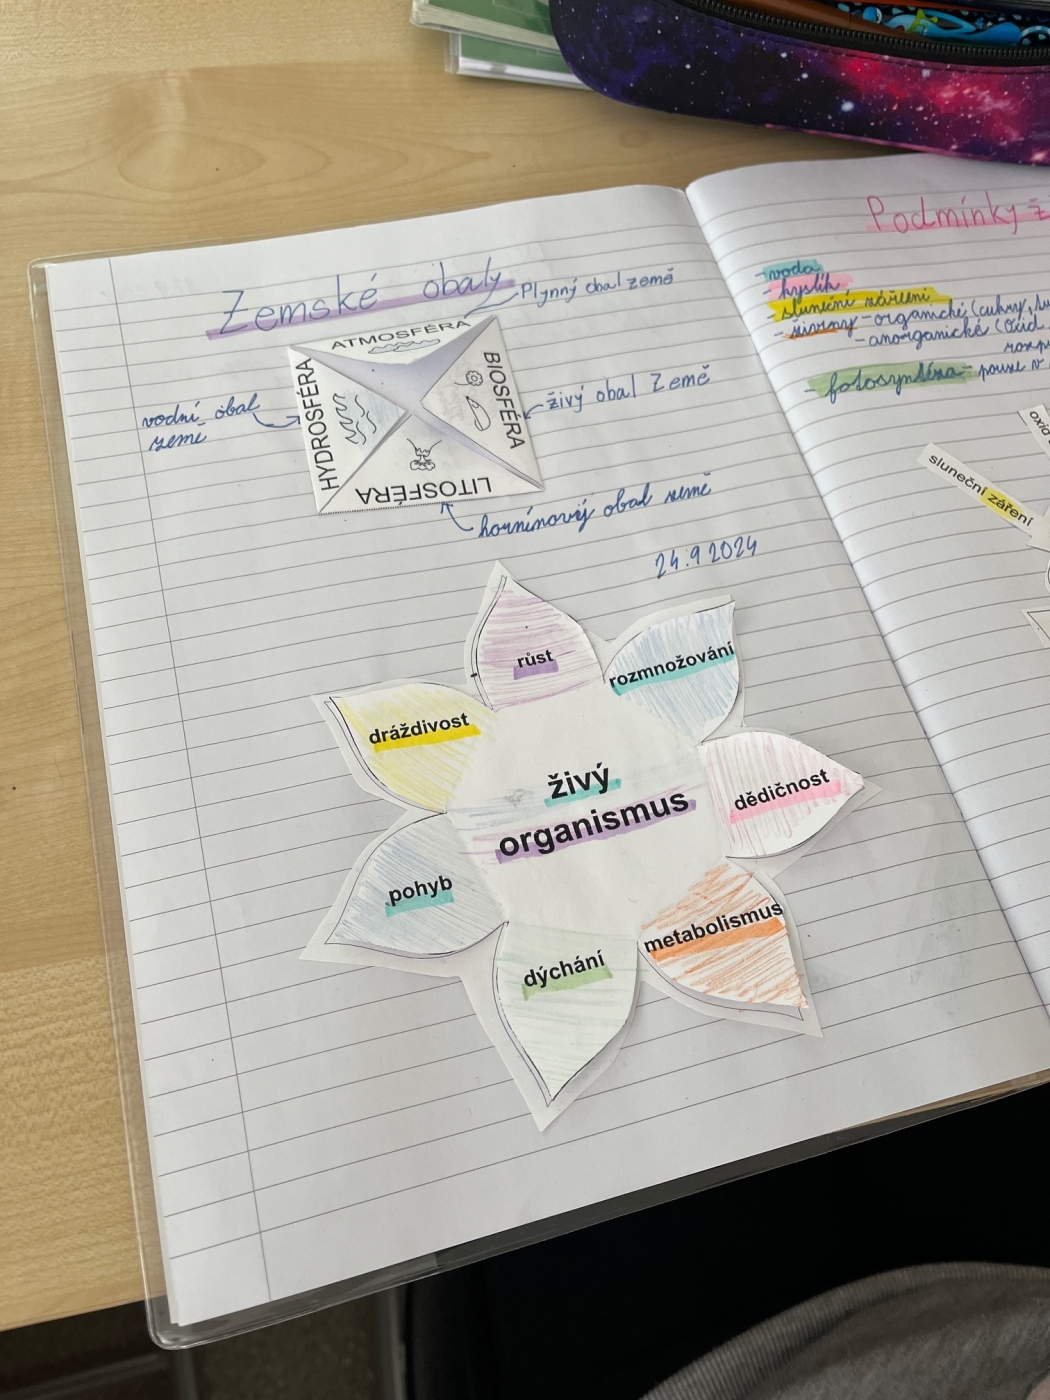 Zemské obaly
Plynný obal země
ATMOSFÉRA
BIOSFÉRA
HYDROSFÉRA
LITOSFÉRA
vodní obal
země
živý obal Země
horninový obal země
24.9 2024
růst
rozmnožování
dráždivost
dědičnost
živý
organismus
pohyb
metabolismus
dýchání
Podmínky
-voda
-kyslík
-sluneční záření
-živiny -organické (cukry,
-anorganické (oxid
- fotosyntéza - pouze v
sluneční záření